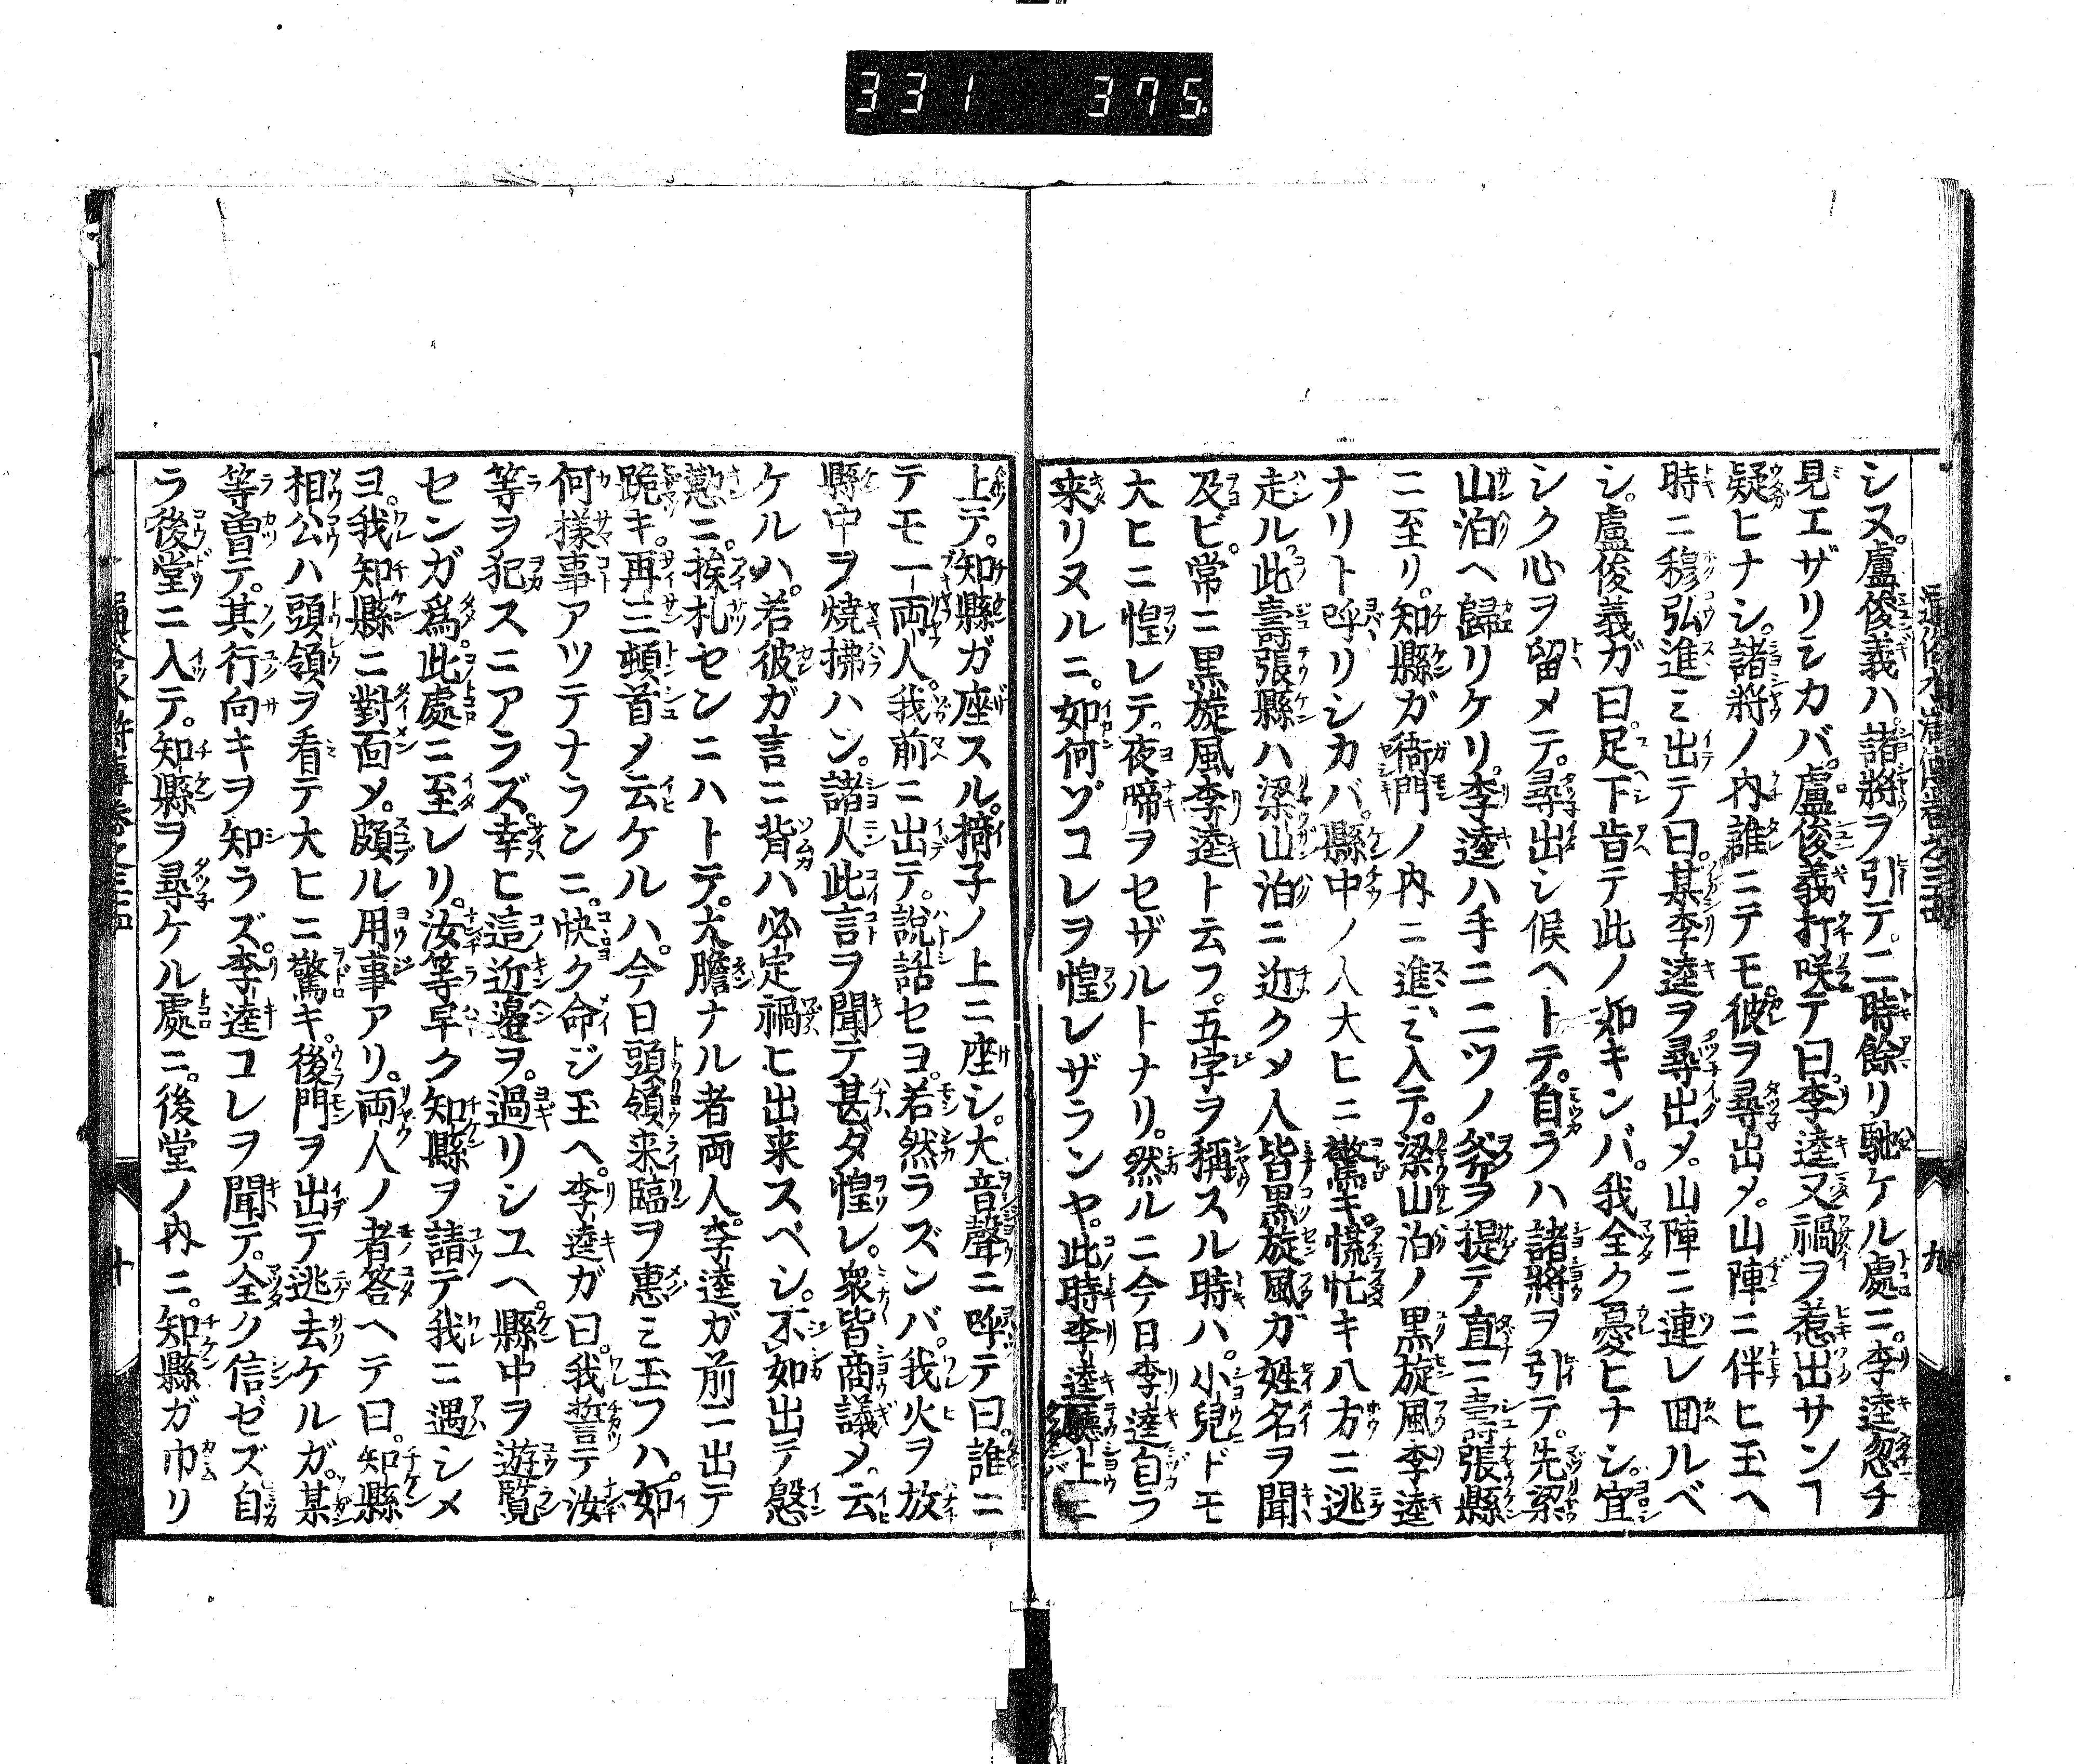 331 375
シヌ。盧俊義ハ諸將ヲ引テ。二時餘リ馳ケル處ニ。李逵忽チ
見エザリシカバ。盧俊義打咲テ曰。李逵又禍ヲ惹出サンヿ
疑ヒナシ。諸將ノ内誰ニテモ。彼ヲ尋出メ。山陣ニ伴ヒ玉ヘ
時ニ穆弘進ミ出テ曰。某李逵ヲ尋出メ。山陣ニ連レ回ルベ
シ。盧俊義ガ曰足下肯テ此ノ如キンバ。我全ク憂ヒナシ。宜
シク心ヲ留メテ。尋出シ候ヘトテ。自ラハ諸將ヲ引テ。先梁
山泊ヘ歸リケリ。李逵ハ手ニ二ツノ斧ヲ提テ直ニ壽張縣
ニ至リ。知縣ガ衙門ノ内ニ進ミ入テ。梁山泊ノ黒旋風李逵
ナリト呼リシカバ。縣中ノ人大ヒニ驚キ。慌忙キ八方ニ逃
走ル。此壽張縣ハ梁山泊ニ近クメ人皆黒旋風ガ姓名ヲ聞
及ビ。常ニ黒旋風李逵ト云フ。五字ヲ稱スル時ハ。小兒ドモ
大ヒニ惶レテ。夜啼ヲセザルトナリ。然ルニ今日李逵自ラ
来リヌルニ。如何ゾコレヲ惶レザランヤ。此時李逵廳上ニ
上テ。知縣ガ座スル。椅子ノ上ニ座シ。大音聲ニ呼テ曰。誰ニ
テモ一両人。我前ニ出テ。說話セヨ。若然ラズンバ。我火ヲ放
縣中ヲ燒拂ハン。諸人此言ヲ聞テ甚ダ惶レ。衆皆商議メ。云
ケルハ。若彼ガ言ニ背ハ必定禍ヒ出来スベシ。不如出テ慇
懃ニ。挨札センニハトテ。大膽ナル者両人。李逵ガ前ニ出テ
跪キ。再三頓首メ云ケルハ。今日頭領来臨ヲ惠ミ玉フハ。如
何樣事アツテナランニ。快ク命ジ玉ヘ。李逵ガ曰。我誓テ汝
等ヲ犯スニアラズ。幸ヒ這近邉ヲ。過リシユヘ。縣中ヲ遊覽
センガ爲。此處ニ至レリ。汝等早ク知縣ヲ請テ我ニ遇シメ
ヨ。我知縣ニ對面メ。頗ル用事アリ。両人ノ者答ヘテ曰。知縣
相公ハ頭領ヲ看テ大ヒニ驚キ。後門ヲ出テ逃去ケルガ。某
等曽テ。其行向キヲ知ラズ。李逵コレヲ聞テ。全ク信ゼズ自
ラ後堂ニ入テ。知縣ヲ尋ケル處ニ。後堂ノ内ニ。知縣ガ巾リ
九
十